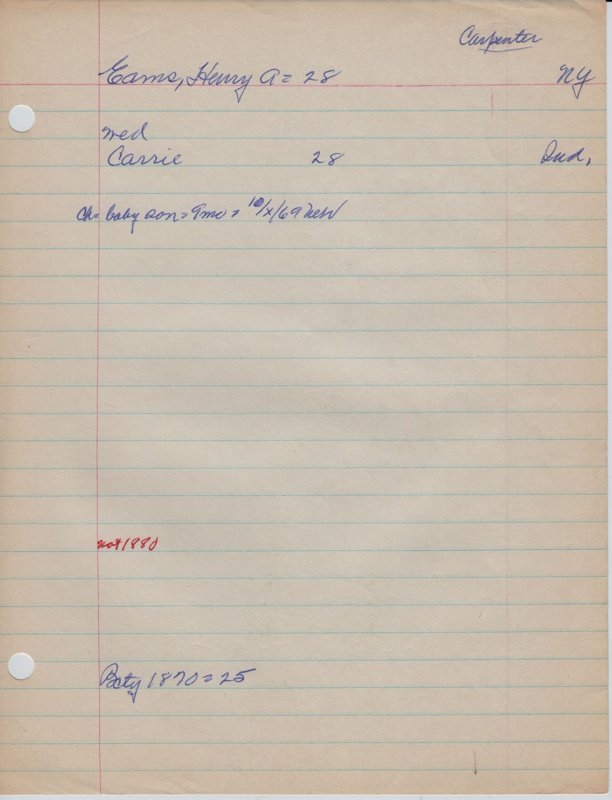 Carpenter
Eams, Henry A = 28 NY
med
Carrie 28 Ind.
ch = baby son = 9mo = 10/x/69 Neb
not 1880
Bcty 1870 = 25